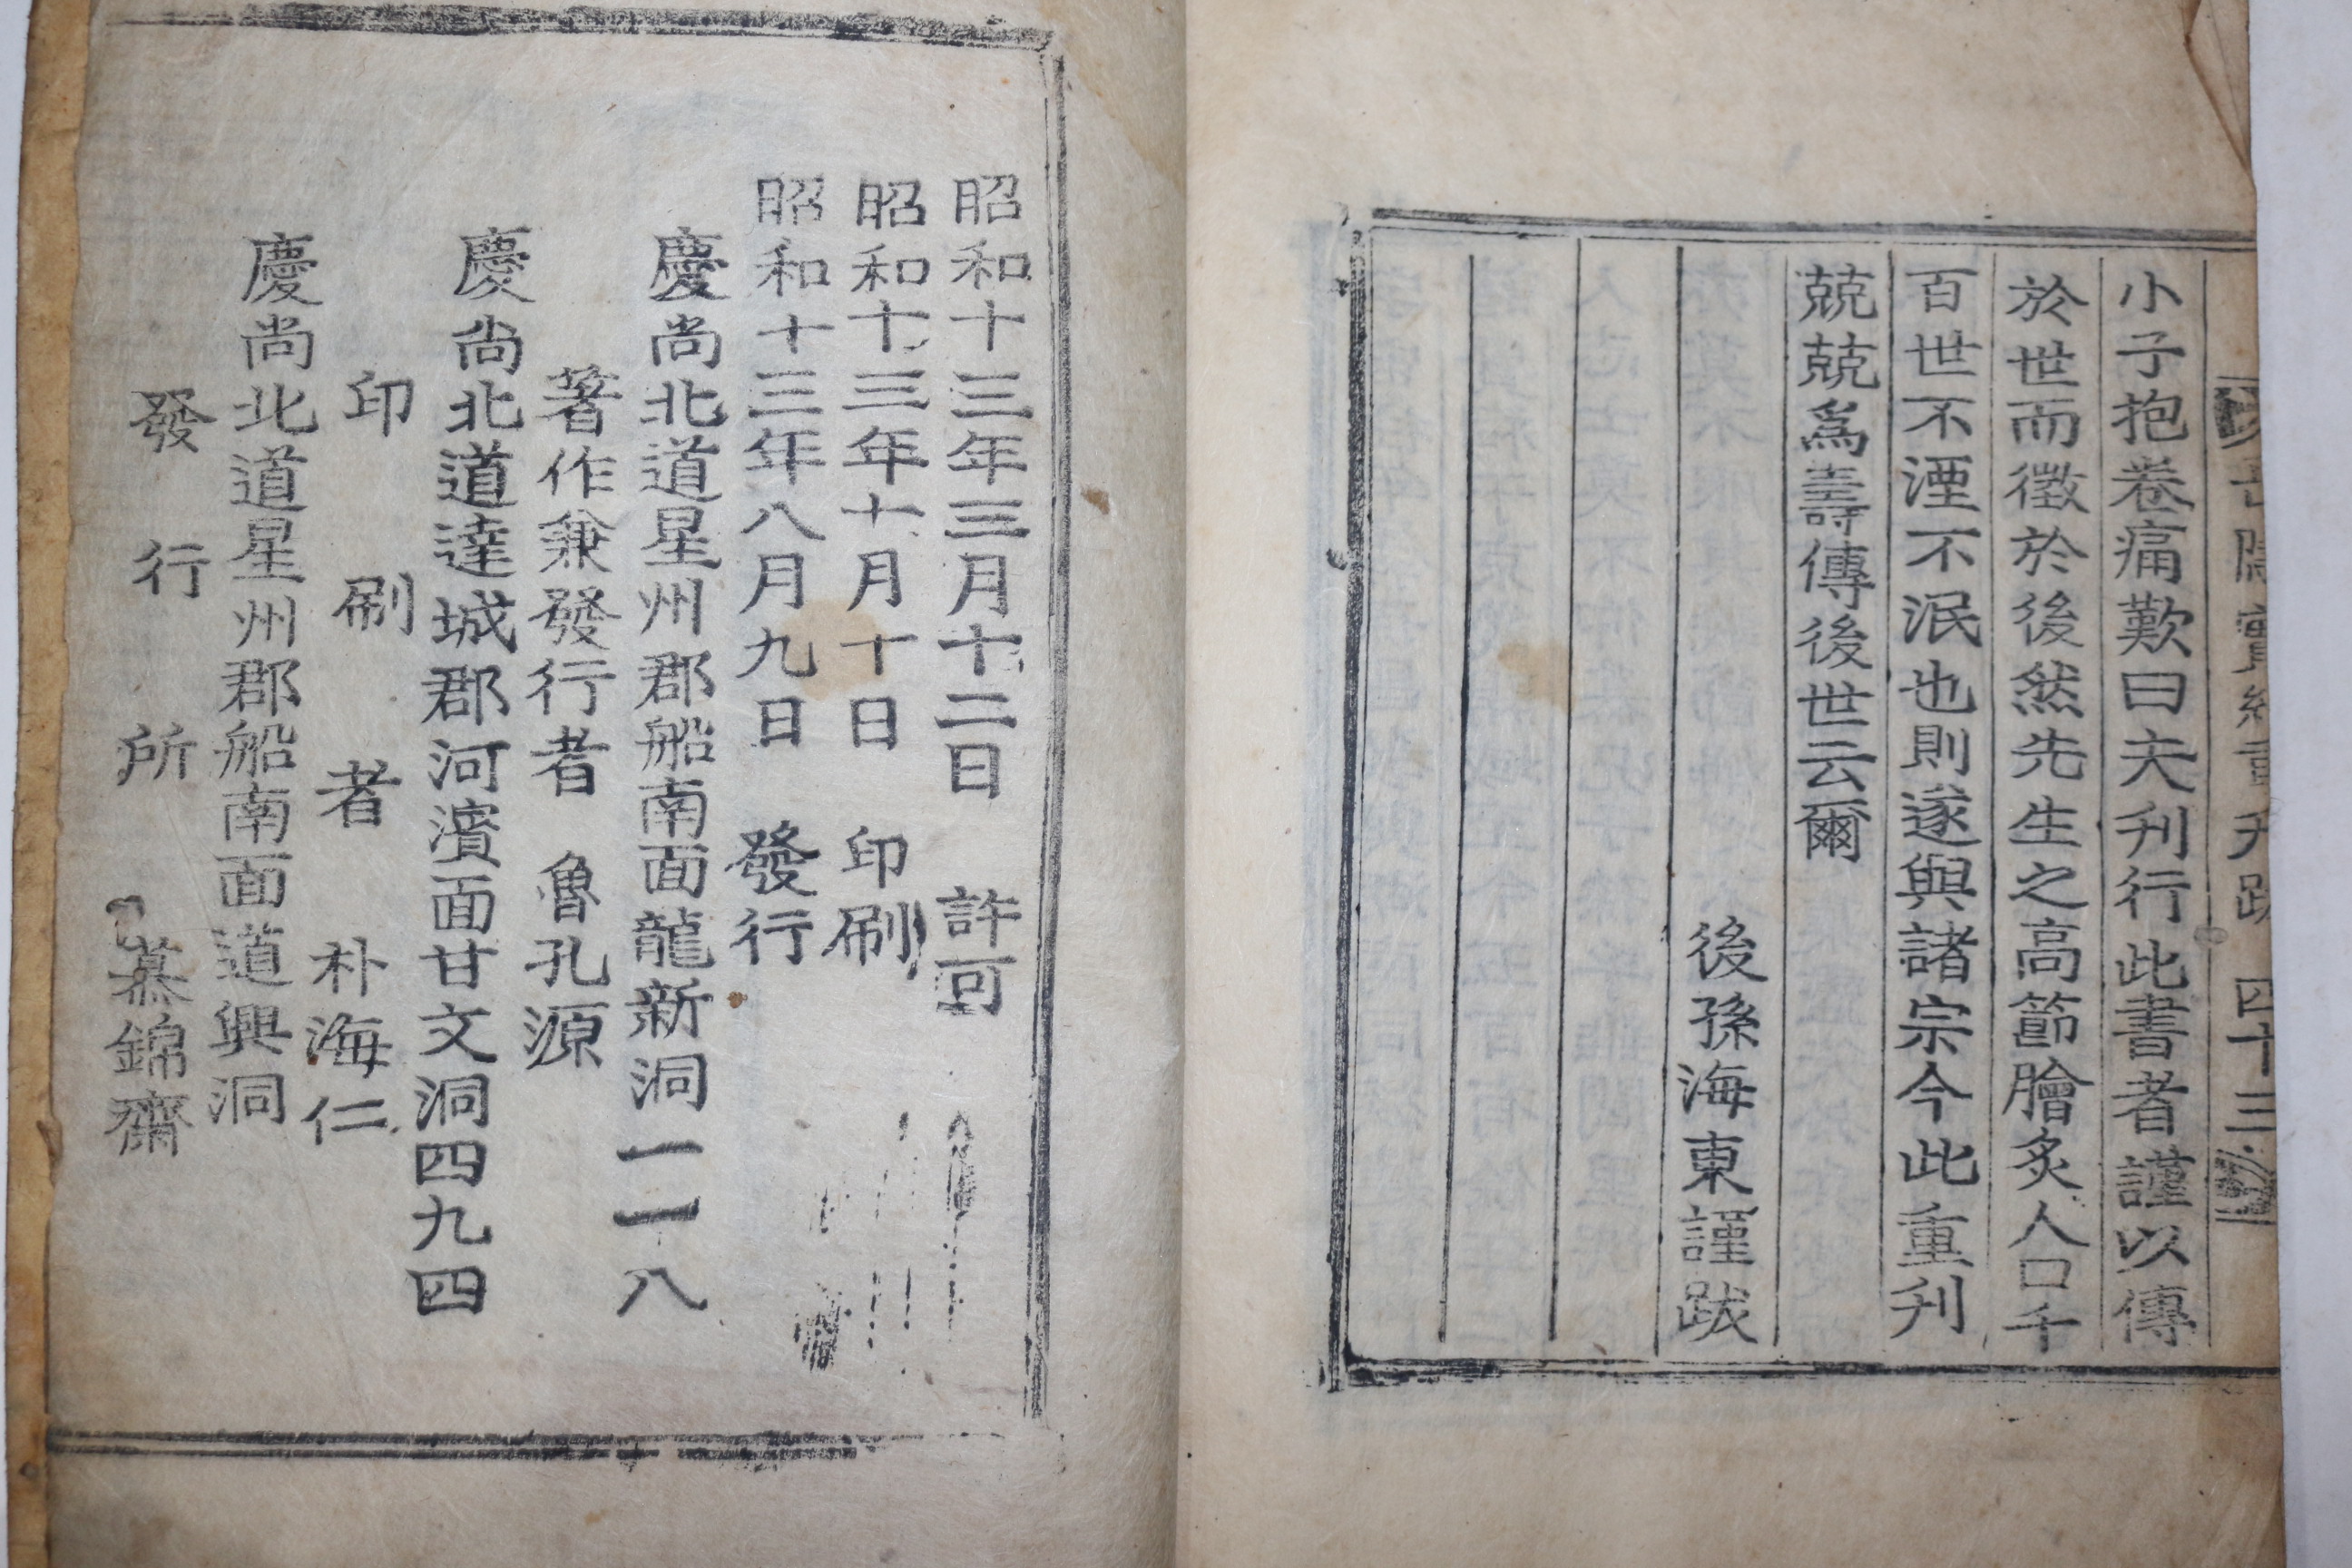 小子抱卷痛歎曰夫刋行此書者謹以傳
於世而徵於後然先生之高節膾炙人口千
百世不湮不泯也則遂與諸宗今此重刋
兢兢爲壽傳後世云爾
後孫海東謹跋
昭和十三年三月十二日 許可
昭和十三年十月十日 印刷
昭和十三年八月九日 發行
慶尚北道星州郡船南面龍新洞一一八
著作兼發行者 魯孔源
慶尚北道達城郡河濱面甘文洞四九四
印刷者 朴海仁
慶尚北道星州郡船南面道興洞
發行所 慕錦齋